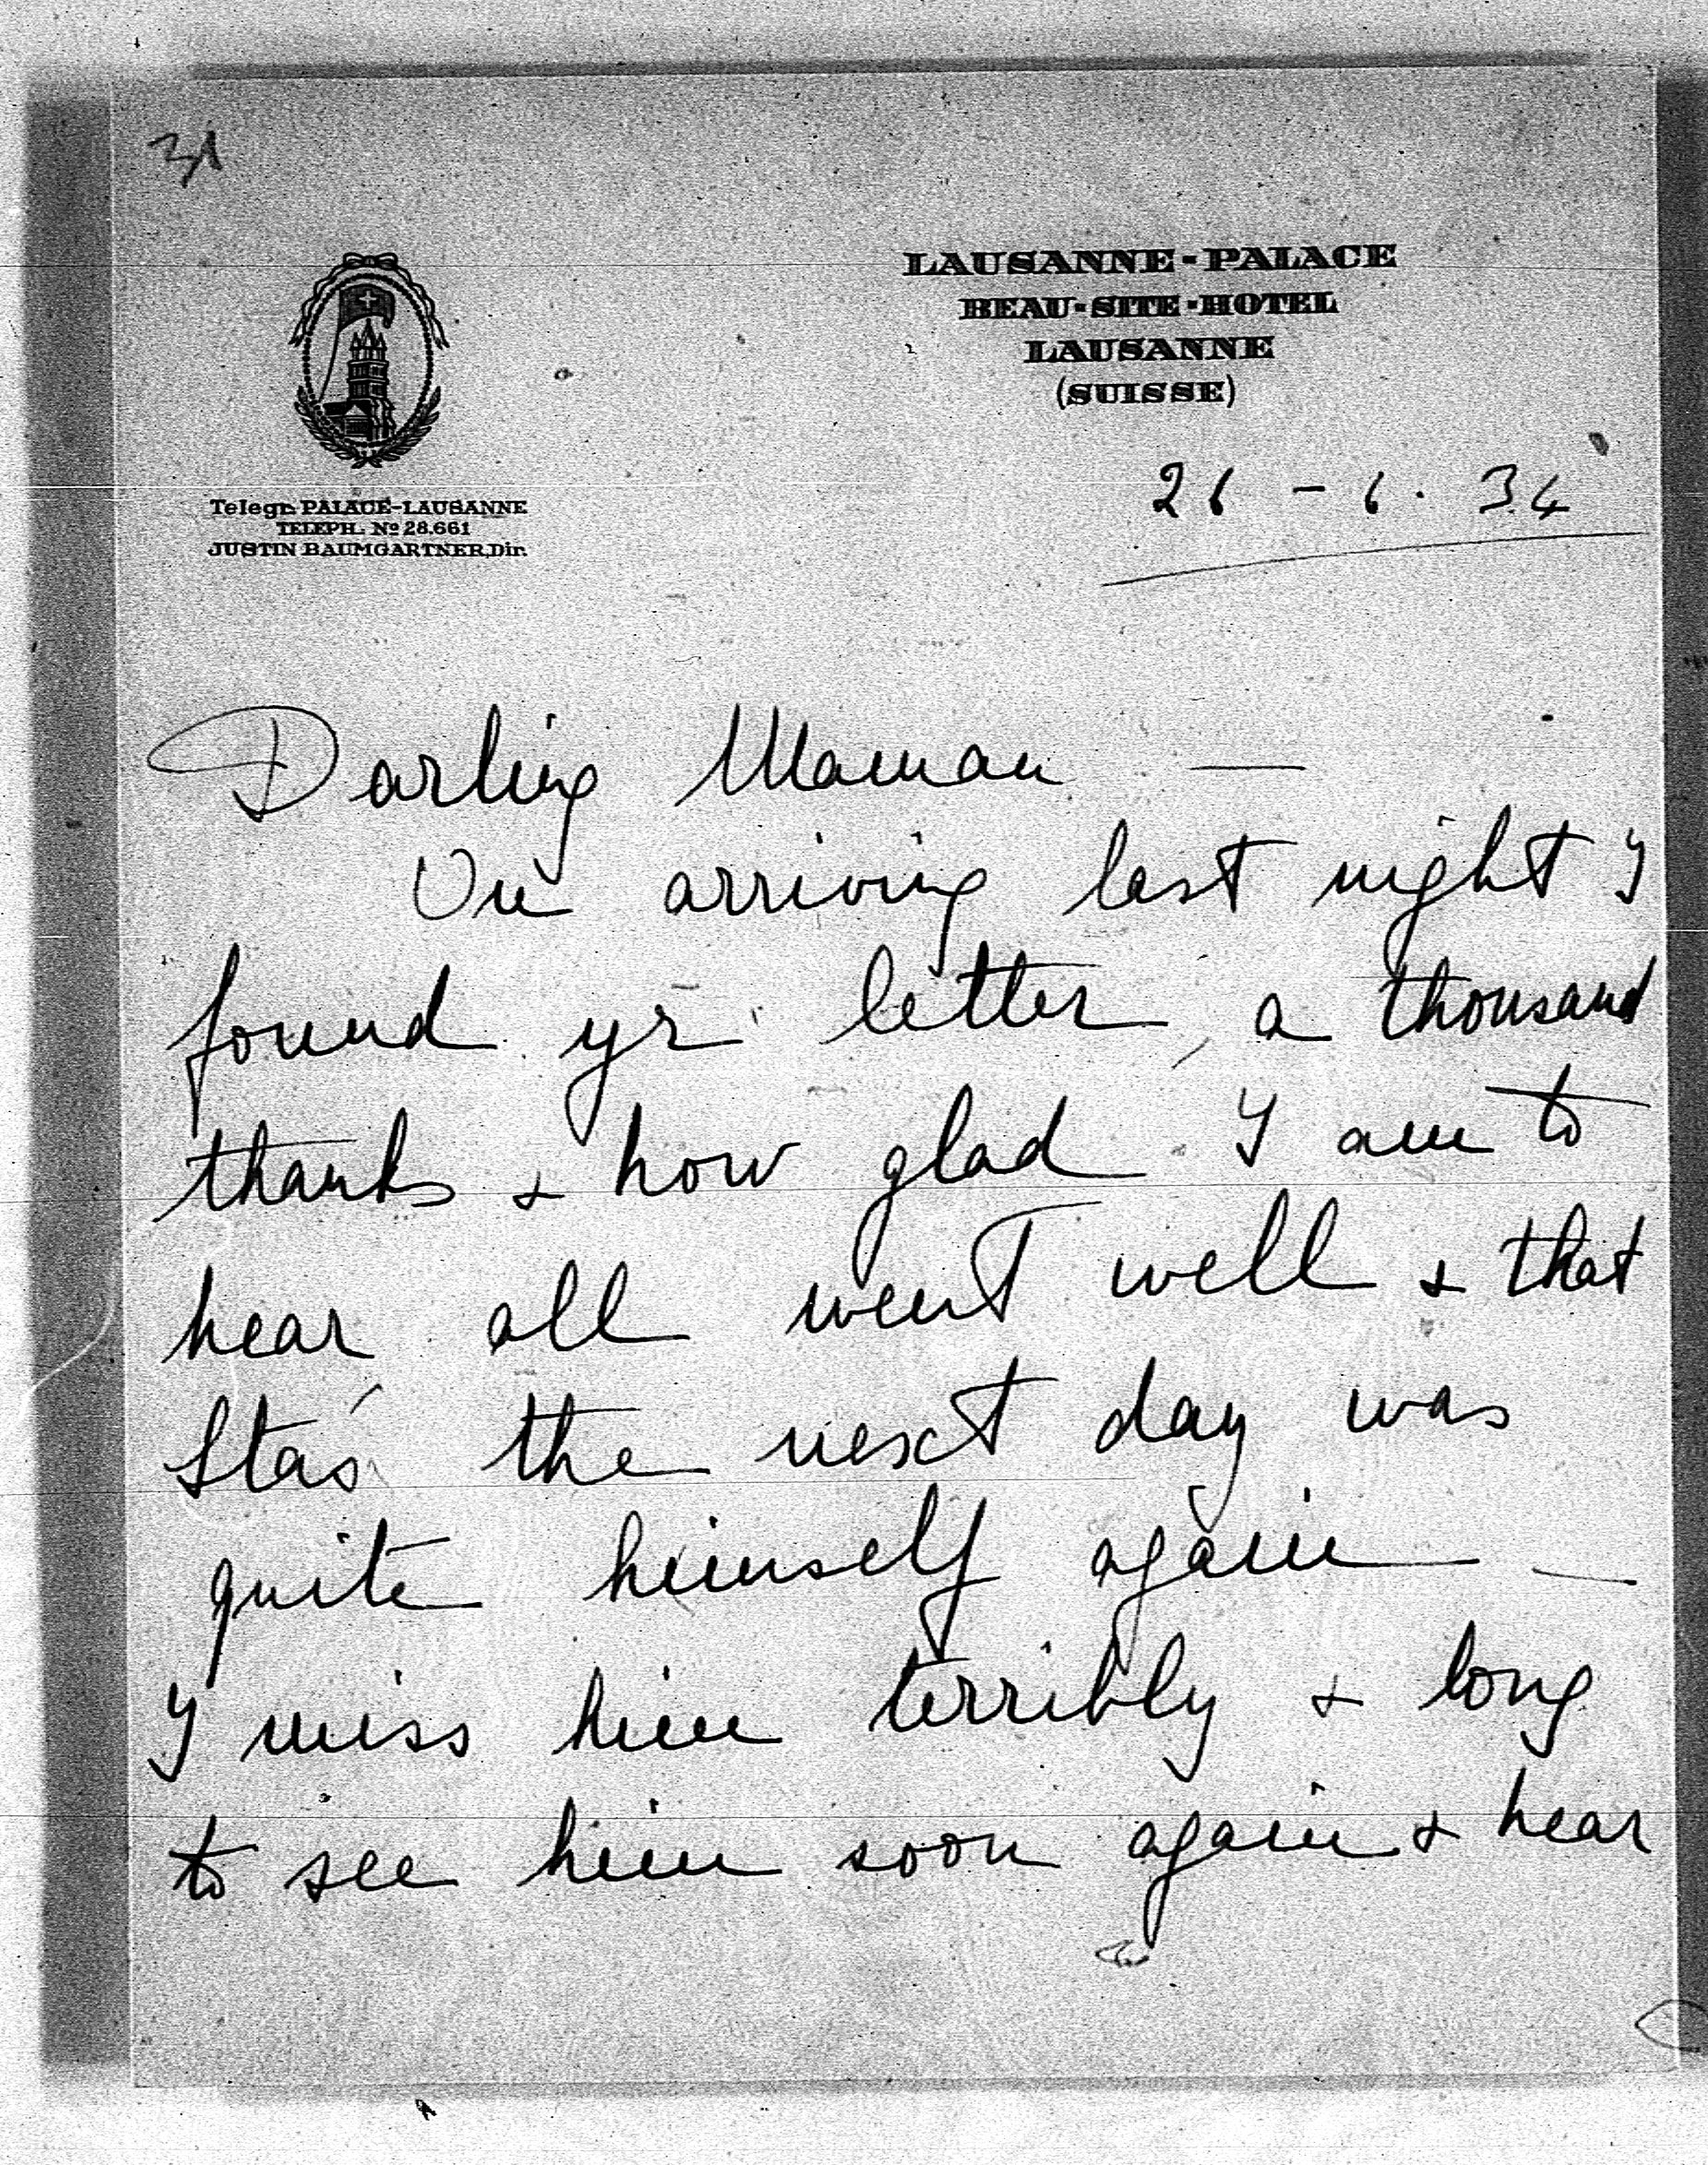 31
LAUSANNE-PALACE
BEAU-SITE-HOTEL
LAUSANNE
(SUISSE)
Telegr. PALACE-LAUSANNE
TELEPH. Nº 28.661
JUSTIN BAUMGARTNER, Dir.
26 - 6. 34
Darling Maman —
On arriving last night I
found yr letter, a thousand
thanks & how glad I am to
hear all went well & that
Staś the next day was
quite himself again —
I miss him terribly & long
to see him soon again & hear